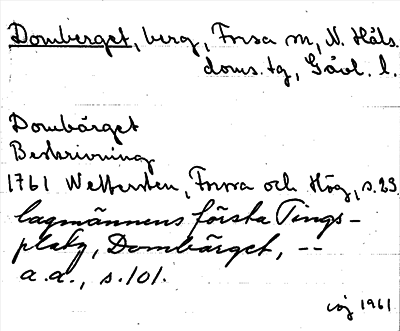 Domberget, berg, Forsa sn, N. Häls.
doms.tg, Gävl. l.
Dombärget
Beskrivning
1761 Wettersten, Forssa och Hög, s.23
lagmännens första Tings-
platz, Dombärget, --
a.a., s.101.
1961